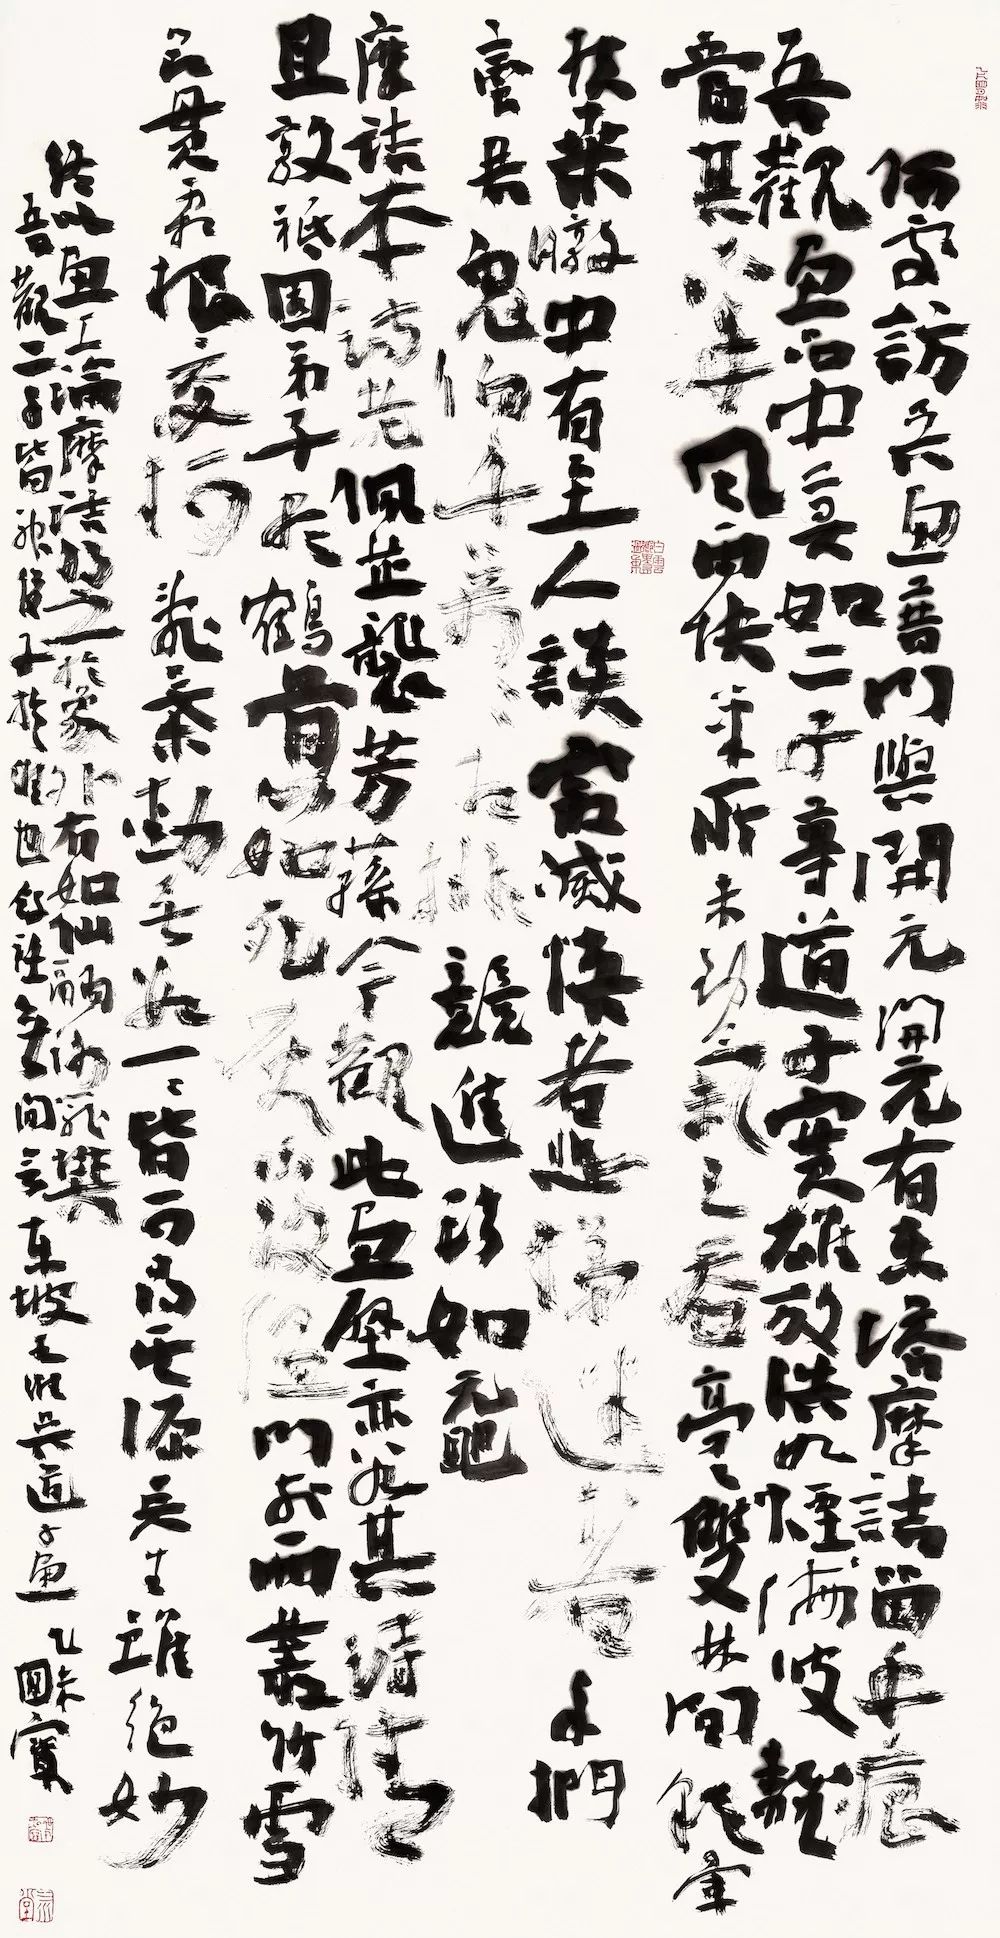 何處訪吳畫普門與開元開元有東塔摩詰留手痕
吾觀畫品中莫如二子尊道子實雄放浩如煙海波翻
當其下手風雨快筆所未到氣已吞亭亭雙林間彩暈
扶桑暾中有至人談寂滅悟者悲涕迷者手捫
蠻君鬼伯千萬萬相排競進頭如黿
摩詰本詩老佩芷襲芳蓀今觀此畫壁亦若其詩清
且敦祇園弟子盡鶴骨心如死灰不復溫門前兩叢竹雪
節貫霜根交柯亂葉動無數一一皆可尋其源吳生雖絕妙
猶以畫工論摩詰得之於象外有如仙翮謝籠樊
吾觀二子皆神俊又於維也斂衽無間言東坡王維吳道子畫乙未國寶